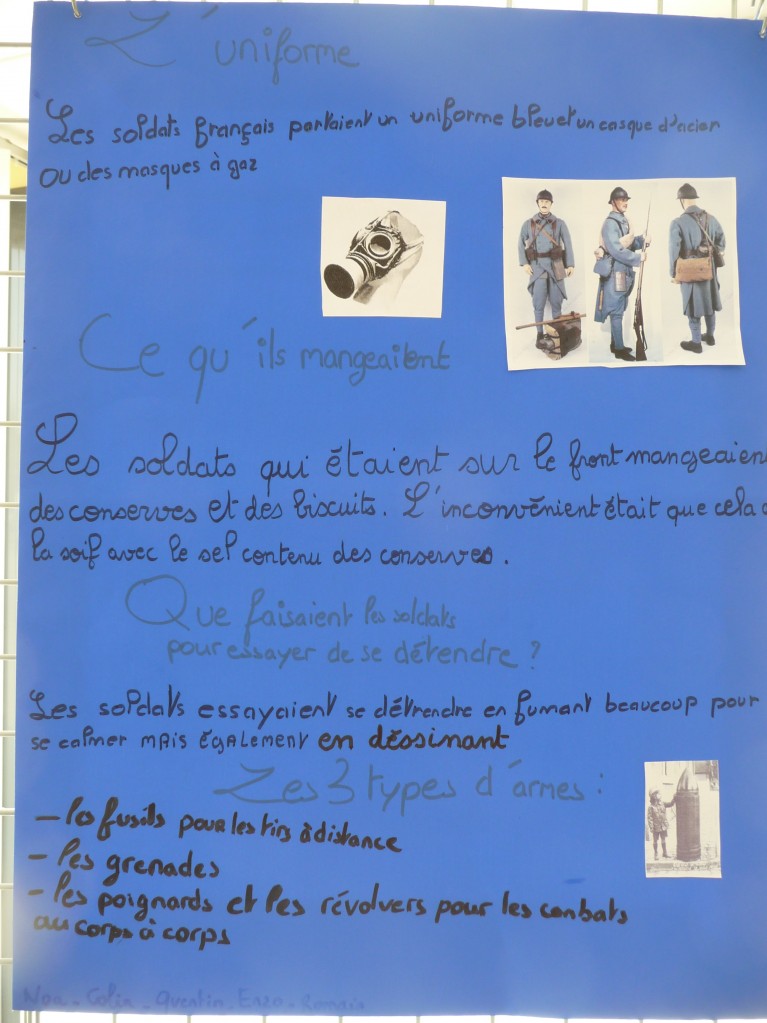 L'uniforme
Les soldats français portaient un uniforme bleu et un casque d'acier
ou des masques à gaz
Ce qu'ils mangeaient
Les soldats qui étaient sur le front mangeaien
des conserves et des biscuits. L'inconvénient était que cela
la soif avec le sel contenu des conserves.
Que faisaient les soldats
pour essayer de se détendre ?
Les soldats essayaient se détrendre en fumant beaucoup pour
se calmer MAIS ÉGALEMENT en déssinant
Les 3 types d'armes :
- les fusils pour les tirs à distance
- les grenades
- les poignards et les révolvers pour les combats
au corps à corps
Noa - Colin - Quentin - Enzo - Romain